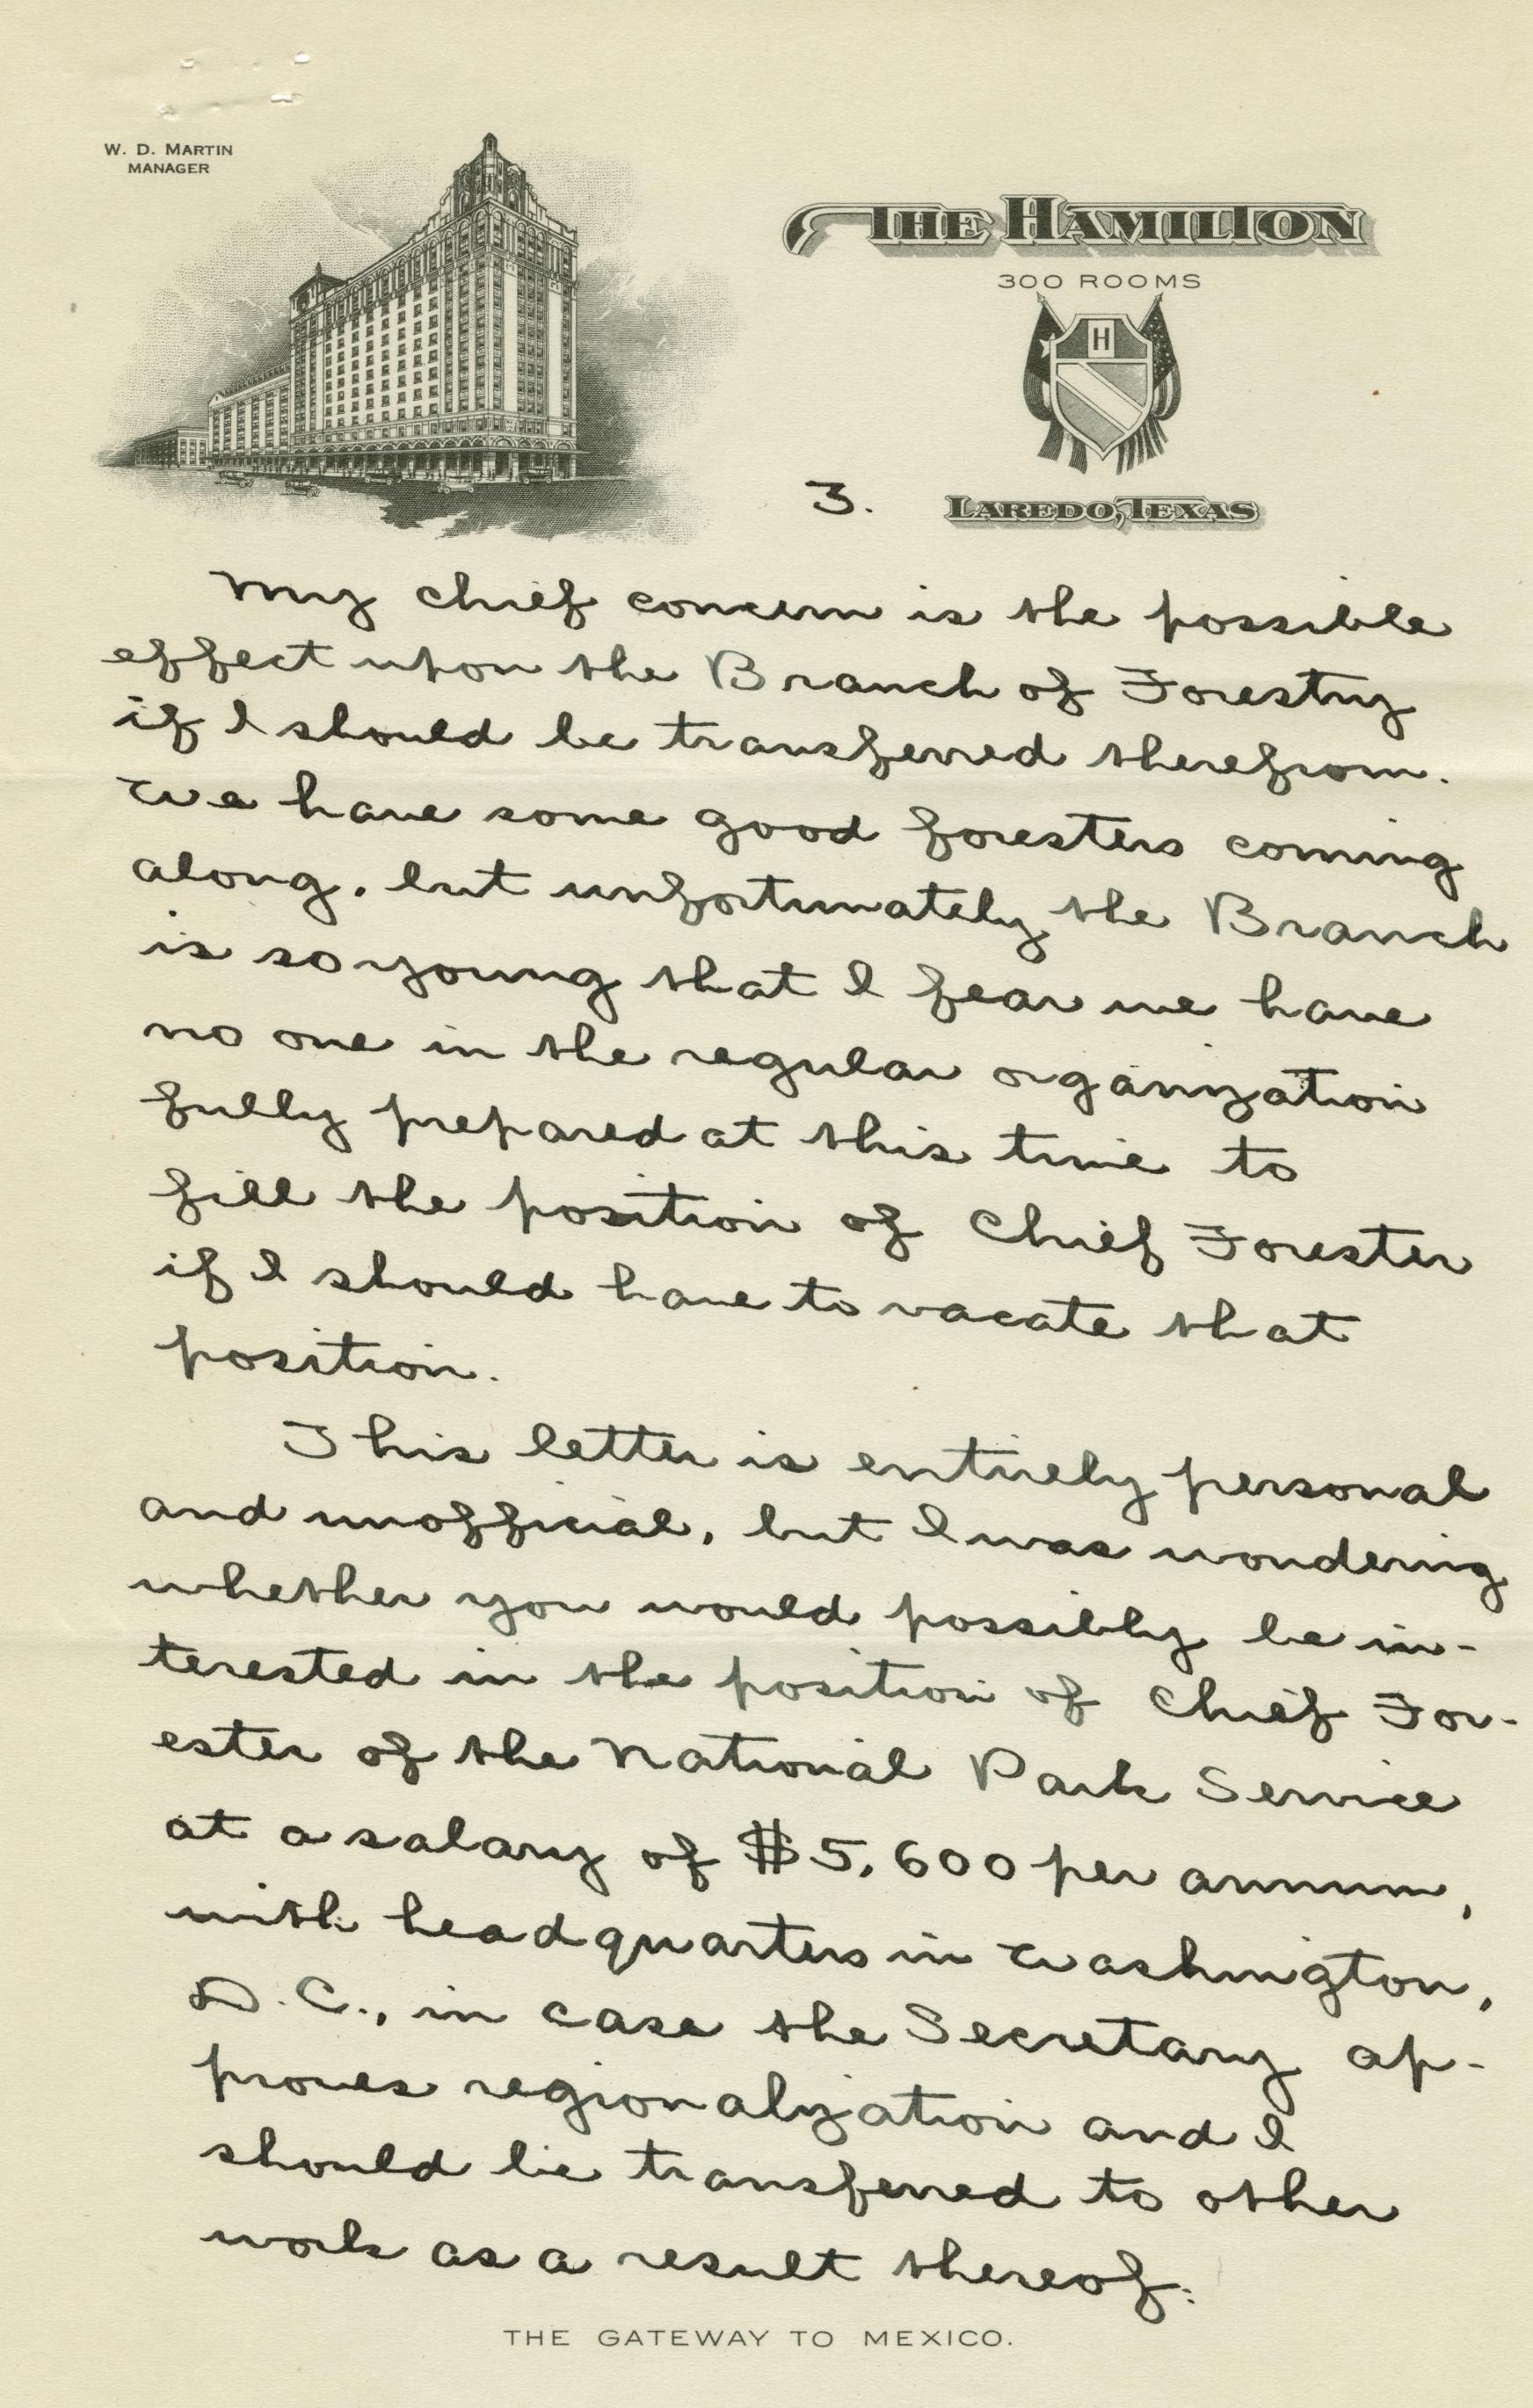 W. D. MARTIN
MANAGER
THE HAMILTON
300 ROOMS
H
3.
LAREDO, TEXAS
My chief concern is the possible
effect upon the Branch of Forestry
if I should be transferred therefrom.
We have some good foresters coming
along, but unfortunately the Branch
is so young that I fear we have
no one in the regular organization
fully prepared at this time to
fill the position of Chief Forester
if I should have to vacate that
position.
This letter is entirely personal
and unofficial, but I was wondering
whether you would possibly be in-
terested in the position of Chief For-
ester of the National Park Service
at a salary of $5,600 per annum,
with headquarters in Washington,
D.C., in case the Secretary ap-
proves regionalization and I
should be transferred to other
work as a result thereof.
THE GATEWAY TO MEXICO.